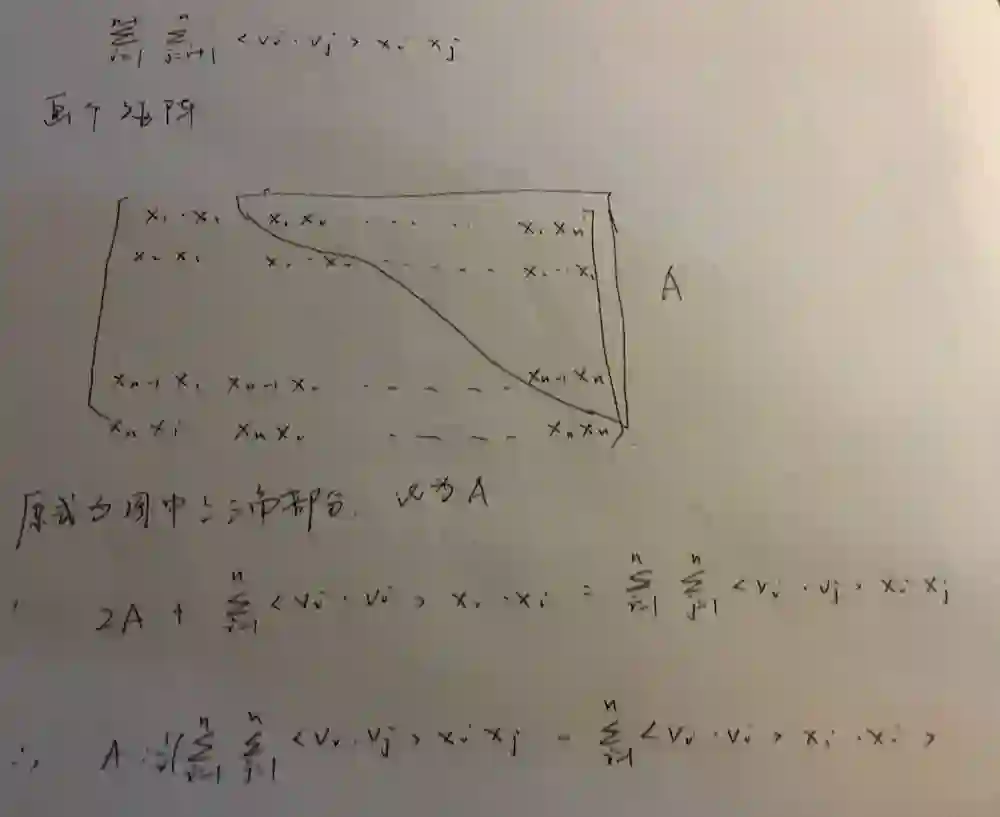 ∑_{i=1}^{n} ∑_{j=i+1}^{n} <v_i · v_j> x_i x_j
画个矩阵
x_1 · x_1 x_1 x_2 · · · · · x_1 x_n
x_2 x_1 x_2 · x_2 - - - - -
A
x_{n-1} x_1 x_{n-1} x_2 · - - - - x_{n-1} x_n
x_n x_1 x_n x_2 - - - - x_n x_n
原式为图中上三角部分, 记为A
∵ 2A + ∑_{i=1}^{n} <v_i · v_i> x_i · x_i = ∑_{i=1}^{n} ∑_{j=1}^{n} <v_i · v_j> x_i x_j
∴ A = ½(∑_{i=1}^{n} ∑_{j=1}^{n} <v_i · v_j> x_i x_j - ∑_{i=1}^{n} <v_i · v_i> x_i · x_i >